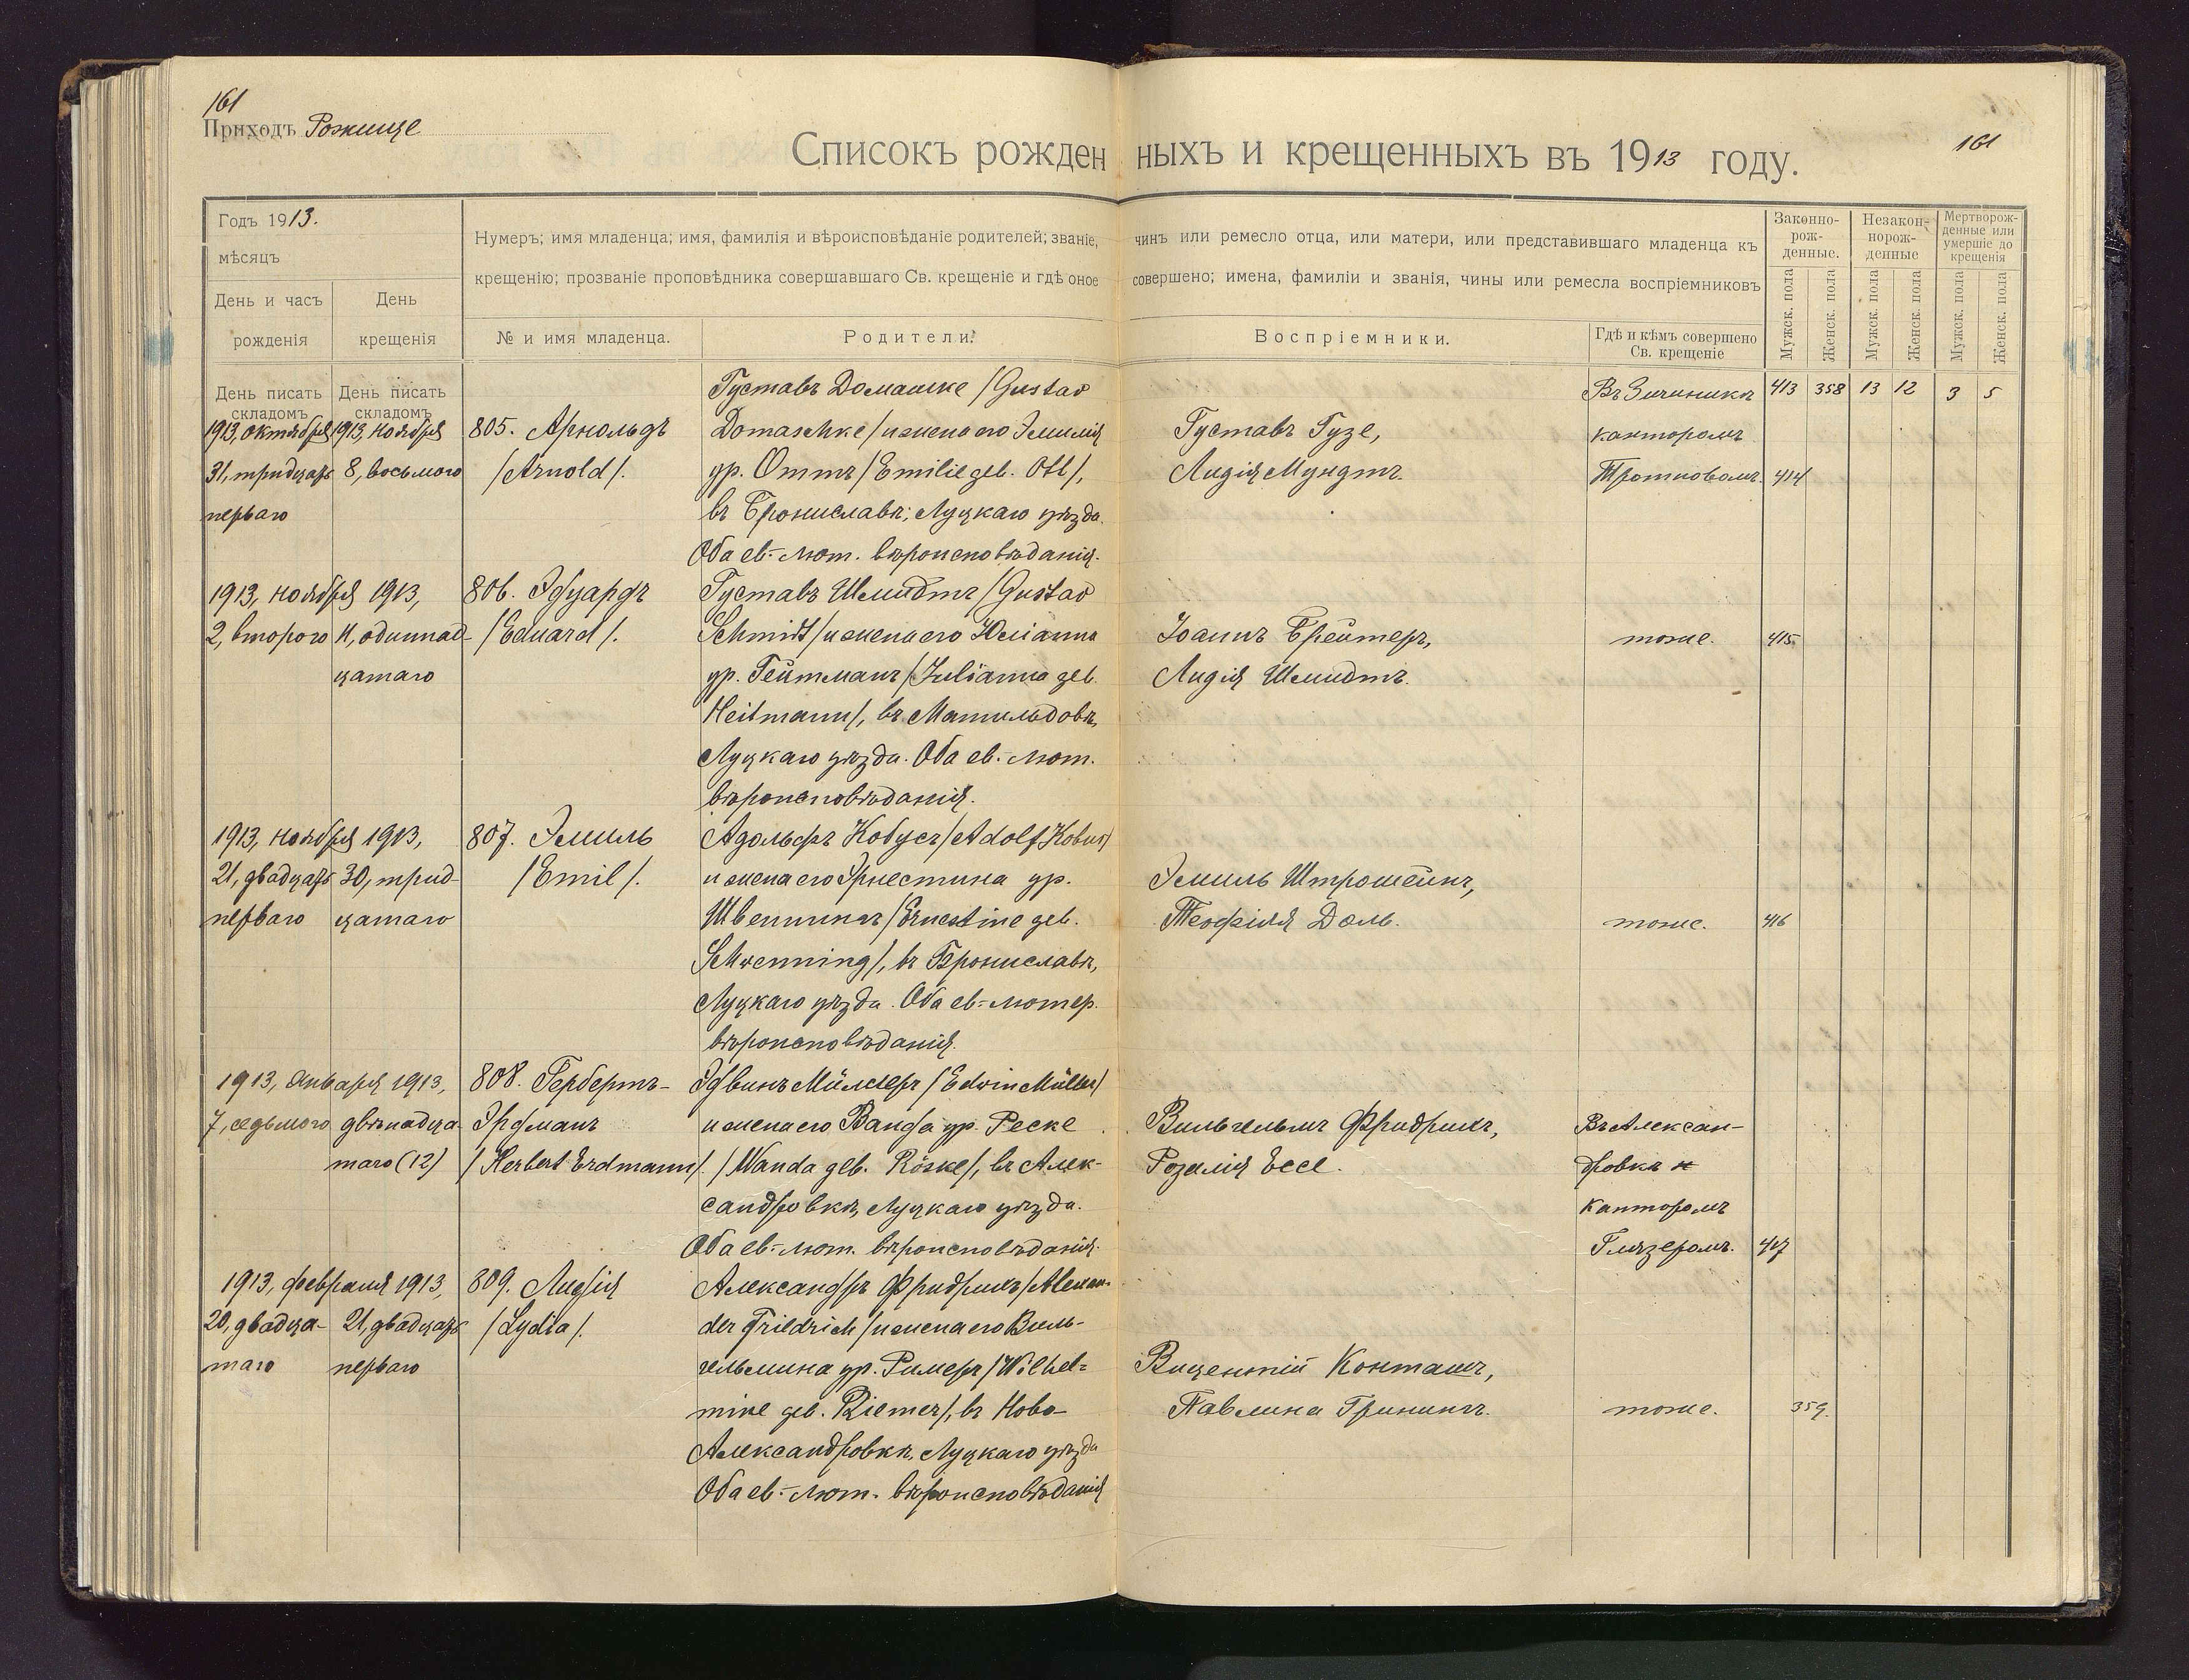 161
Приходъ Рожище
Списокъ рожденныхъ и крещенныхъ въ 1913 году.
161
Годъ 1913.
мѣсяцъ
День и часъ рожденія
День крещенія
Нумеръ; имя младенца; имя, фамилія и вѣроисповѣданіе родителей; званіе, чинъ или ремесло отца, или матери, или представившаго младенца къ
крещенію; прозваніе проповѣдника совершавшаго Св. крещеніе и гдѣ оное совершено; имена, фамиліи и званія, чины или ремесла воспріемниковъ
№ и имя младенца.
Родители.
Воспріемники.
Гдѣ и кѣмъ совершено
Св. крещеніе
Законно-
рож-
денные.
Незакон-
норож-
денные
Мертворож-
денные или
умершіе до
крещенія
Мужск. пола
Женск. пола
Мужск. пола
Женск. пола
Мужск. пола
Женск. пола
День писать складомъ
День писать складомъ
413 358 13 12 3 5
1913, октября
31, тридцать
перваго
1913, ноября
8, восьмого
805. Арнольдъ
/Arnold/.
Густавъ Домашке /Gustav
Domaschke/ и жена его Эмилія
ур. Оттъ /Emilie geb. Ott/,
въ Брониславѣ, Луцкаго уѣзда.
Оба ев.-лют. вѣроисповѣданія.
Густавъ Гузе,
Лидія Мундтъ.
Въ
канторомъ
414
1913, ноября
2, второго
1913,
11, одиннад-
цатаго
806. Эдуардъ
/Eduard/.
Густавъ Шмидтъ /Gustav
Schmidt/ и жена его Юліанна
ур. Гейтманъ /Julianna geb.
Heitmann/, въ Матильдовѣ,
Луцкаго уѣзда. Оба ев.-лют.
вѣроисповѣданія.
Іоаннъ Брейтеръ,
Лидія Шмидтъ.
тоже.
415.
1913, ноября
21, двадцать
перваго
1913,
30, трид-
цатаго
807. Эмиль
/Emil/.
Адольфъ Кобусъ /Adolf Kobus/
и жена его Эрнестина ур.
Швеннингъ /Ernestine geb.
Schwenning/, въ Брониславѣ,
Луцкаго уѣзда. Оба ев.-лютер.
вѣроисповѣданія.
Эмиль Штрошейнъ,
Теофілія Даль.
тоже.
416
1913, января
7, седьмого
1913,
двѣнадца-
таго (12)
808. Гербертъ-
Эрдманъ
/Herbert Erdmann/.
Эдвинъ Мюллеръ /Edwin Müller/
и жена его Ванда ур. Реске
/Wanda geb. Röske/, въ Алек-
сандровкѣ, Луцкаго уѣзда.
Оба ев.-лют. вѣроисповѣданія.
Вильгельмъ Фридрихъ,
Розалія Ессе.
Въ Алексан-
дровкѣ
канторомъ
Глязеромъ.
417
1913, февраля
20, двадца-
таго
1913,
21, двадцать
перваго
809. Лидія
/Lydia/.
Александръ Фридрихъ /Alexan-
der Friedrich/ и жена его Виль-
гельмина ур. Римеръ /Wilhel-
mine geb. Riemer/, въ Ново-
Александровкѣ, Луцкаго уѣзда
Оба ев.-лют. вѣроисповѣданія
Вицентій
Павлина Гринингъ.
тоже.
359.